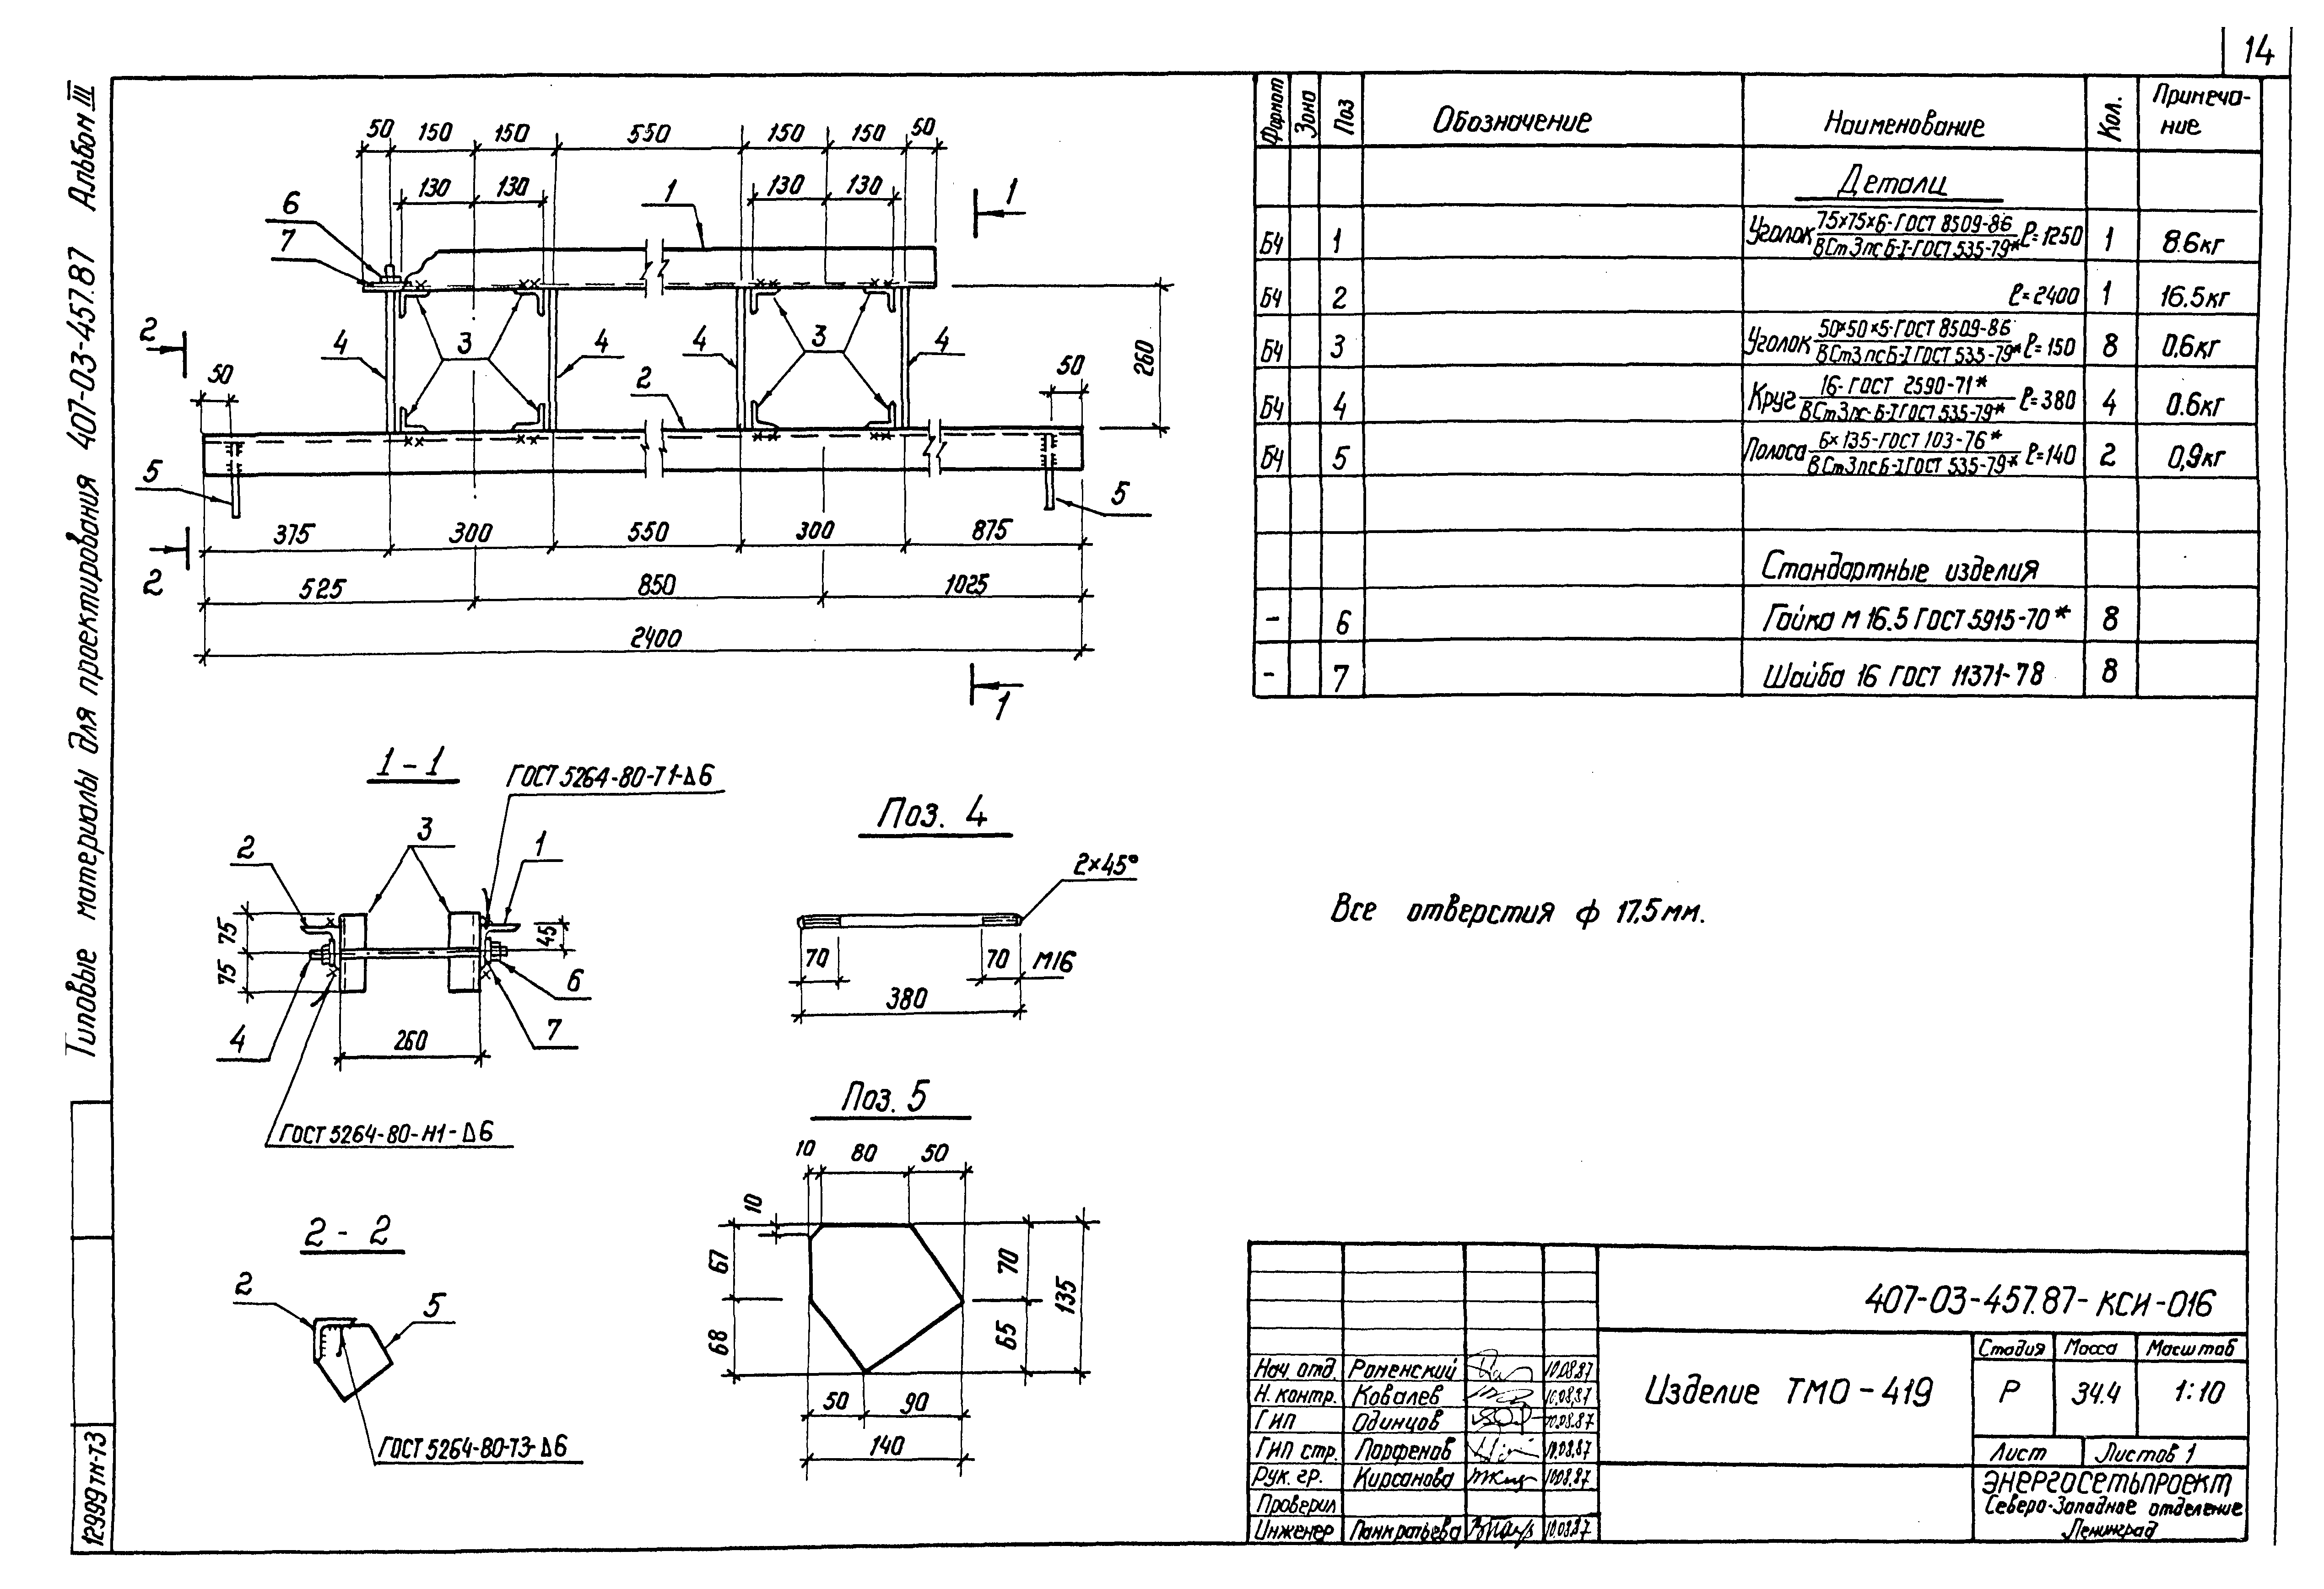 14
Типовые материалы для проектирования 407-03-457.87 Альбом III
12999тм-т3
50 150 150 550 150 150 50
130 130 130 130
6
7
1
1
2
4
3
4
4
3
4
260
50
2
50
5
5
375 300 550 300 875
2
525 850 1025
2400
1
1 - 1
ГОСТ 5264-80-Т1-Δ6
2
3
1
75
75
45
6
7
4
260
ГОСТ 5264-80-Н1-Δ6
Поз. 4
2×45°
70 70 М16
380
Поз. 5
10 80 50
10
67
68
70
65
135
50 90
140
2 - 2
2
5
ГОСТ 5264-80-Т3-Δ6
Формат Зона Поз Обозначение Наименование Кол. Примеча-
ние
Детали
БЧ 1 Уголок 75×75×6-ГОСТ 8509-86 / ВСт3пс6-I-ГОСТ 535-79* ℓ=1250 1 8.6кг
БЧ 2 ℓ=2400 1 16.5кг
БЧ 3 Уголок 50×50×5-ГОСТ 8509-86 / ВСт3пс6-I ГОСТ 535-79* ℓ=150 8 0,6кг
БЧ 4 Круг 16-ГОСТ 2590-71* / ВСт3пс-6-I ГОСТ 535-79* ℓ=380 4 0.6кг
БЧ 5 Полоса 6×135-ГОСТ 103-76* / ВСт3пс6-I ГОСТ 535-79* ℓ=140 2 0,9кг
Стандартные изделия
- 6 Гайка М 16.5 ГОСТ 5915-70* 8
- 7 Шайба 16 ГОСТ 11371-78 8
Все отверстия ф 17.5мм.
407-03-457.87-КСИ-016
Изделие ТМО-419
Стадия Масса Масштаб
Р 34.4 1:10
Лист Листов 1
ЭНЕРГОСЕТЬПРОЕКТ
Северо-Западное отделение
Ленинград
Нач. отд. Роменский 10.08.87
Н. контр. Ковалев 10.08.87
ГИП Одинцов 10.08.87
ГИП стр. Парфенов 10.08.87
Рук. гр. Кирсанова 10.08.87
Проверил
Инженер Панкратьева 10.08.87